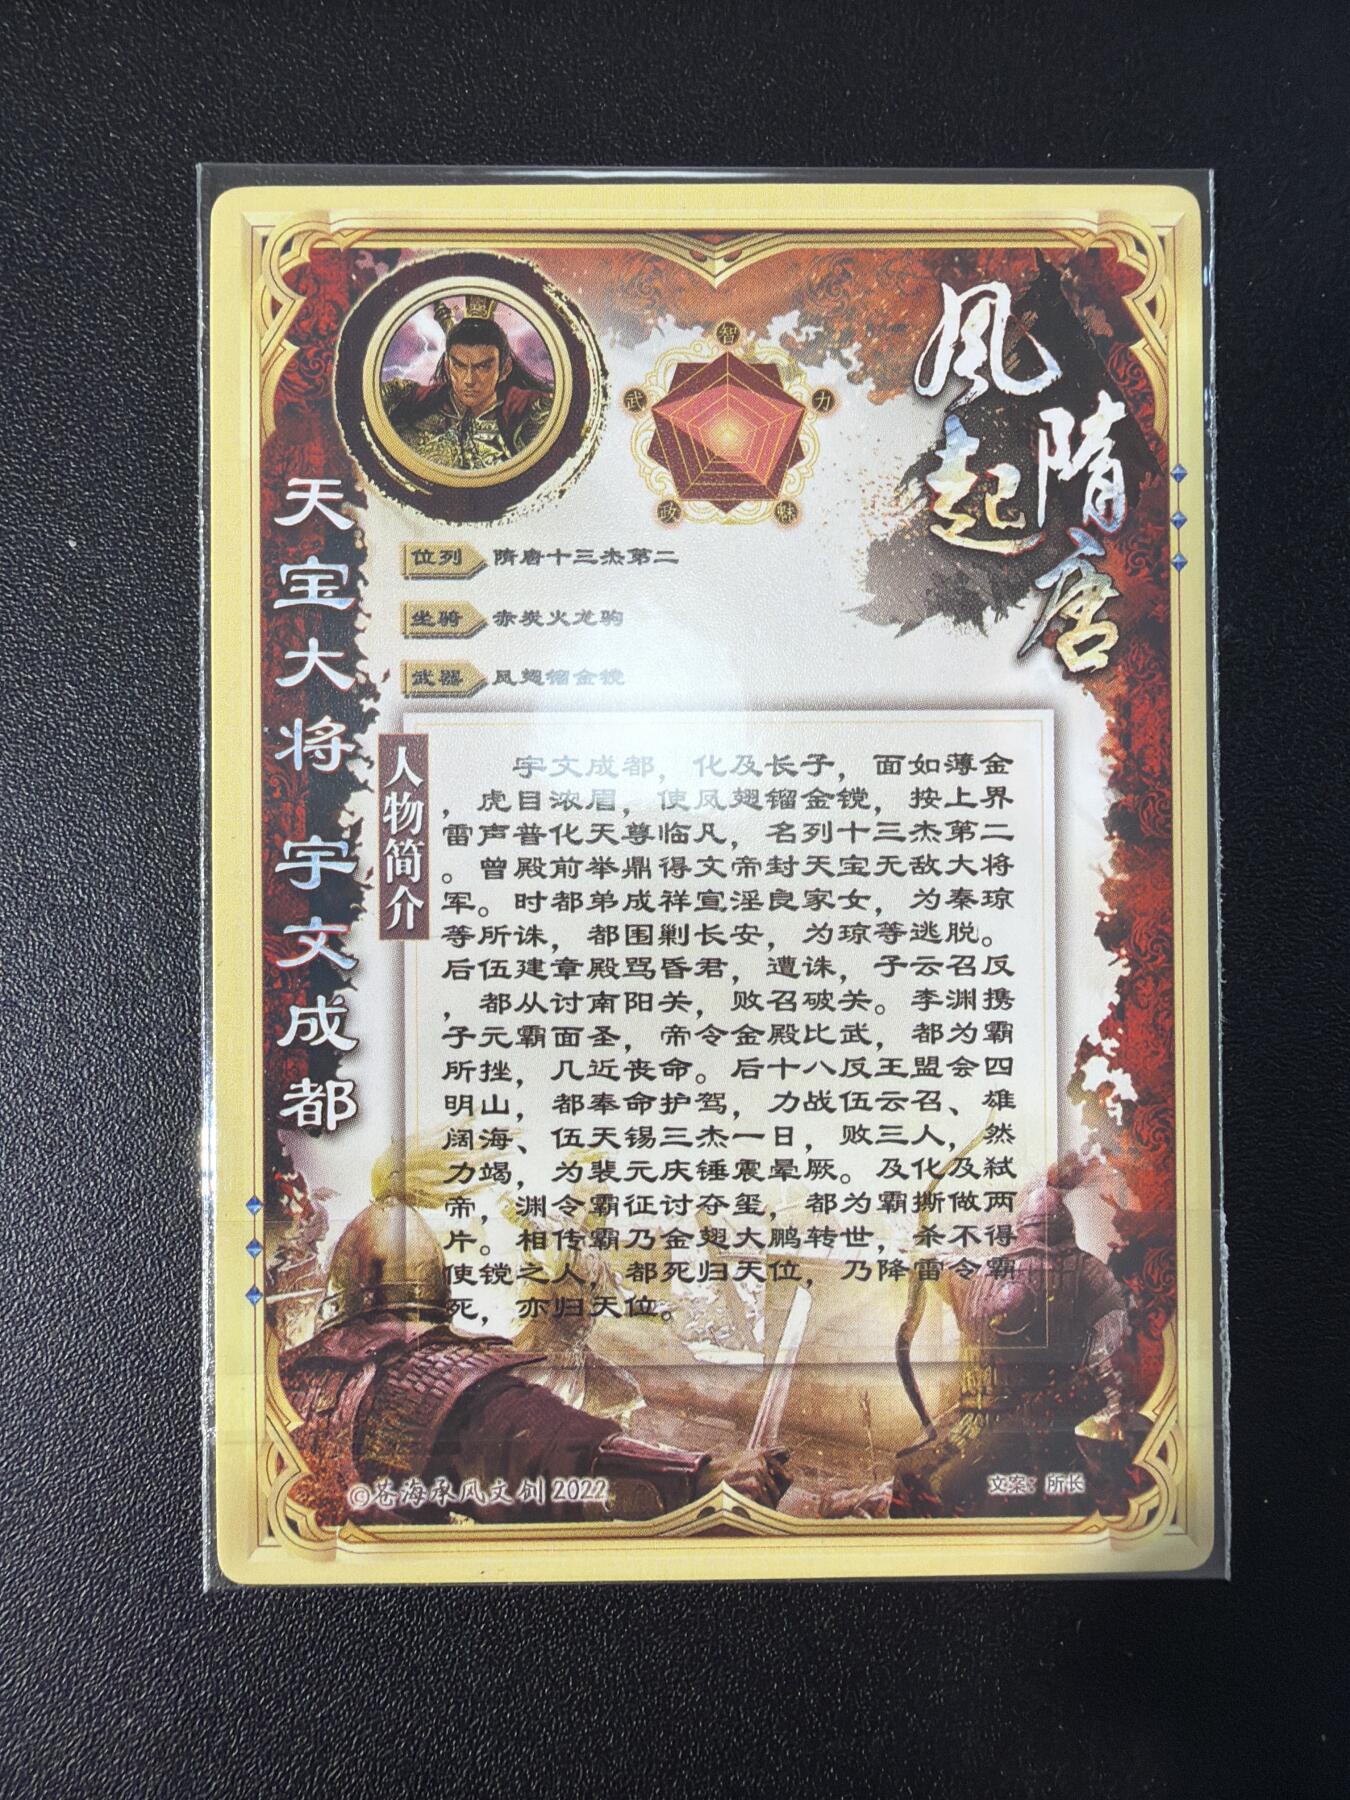 风起
隋唐
智
武
力
政
魅
天宝大将 宇文成都
位列 隋唐十三杰第二
坐骑 赤炭火龙驹
武器 凤翅镏金镋
人物简介
宇文成都，化及长子，面如薄金
，虎目浓眉，使凤翅镏金镋，按上界
雷声普化天尊临凡，名列十三杰第二
。曾殿前举鼎得文帝封天宝无敌大将
军。时都弟成祥宣淫良家女，为秦琼
等所诛，都围剿长安，为琼等逃脱。
后伍建章殿骂昏君，遭诛，子云召反
，都从讨南阳关，败召破关。李渊携
子元霸面圣，帝令金殿比武，都为霸
所挫，几近丧命。后十八反王盟会四
明山，都奉命护驾，力战伍云召、雄
阔海、伍天锡三杰一日，败三人，然
力竭，为裴元庆锤震晕厥。及化及弑
帝，渊令霸征讨夺玺，都为霸撕做两
片。相传霸乃金翅大鹏转世，杀不得
使镋之人，都死归天位，乃降雷令霸
死，亦归天位。
©苍海承风文创 2022
文案：所长